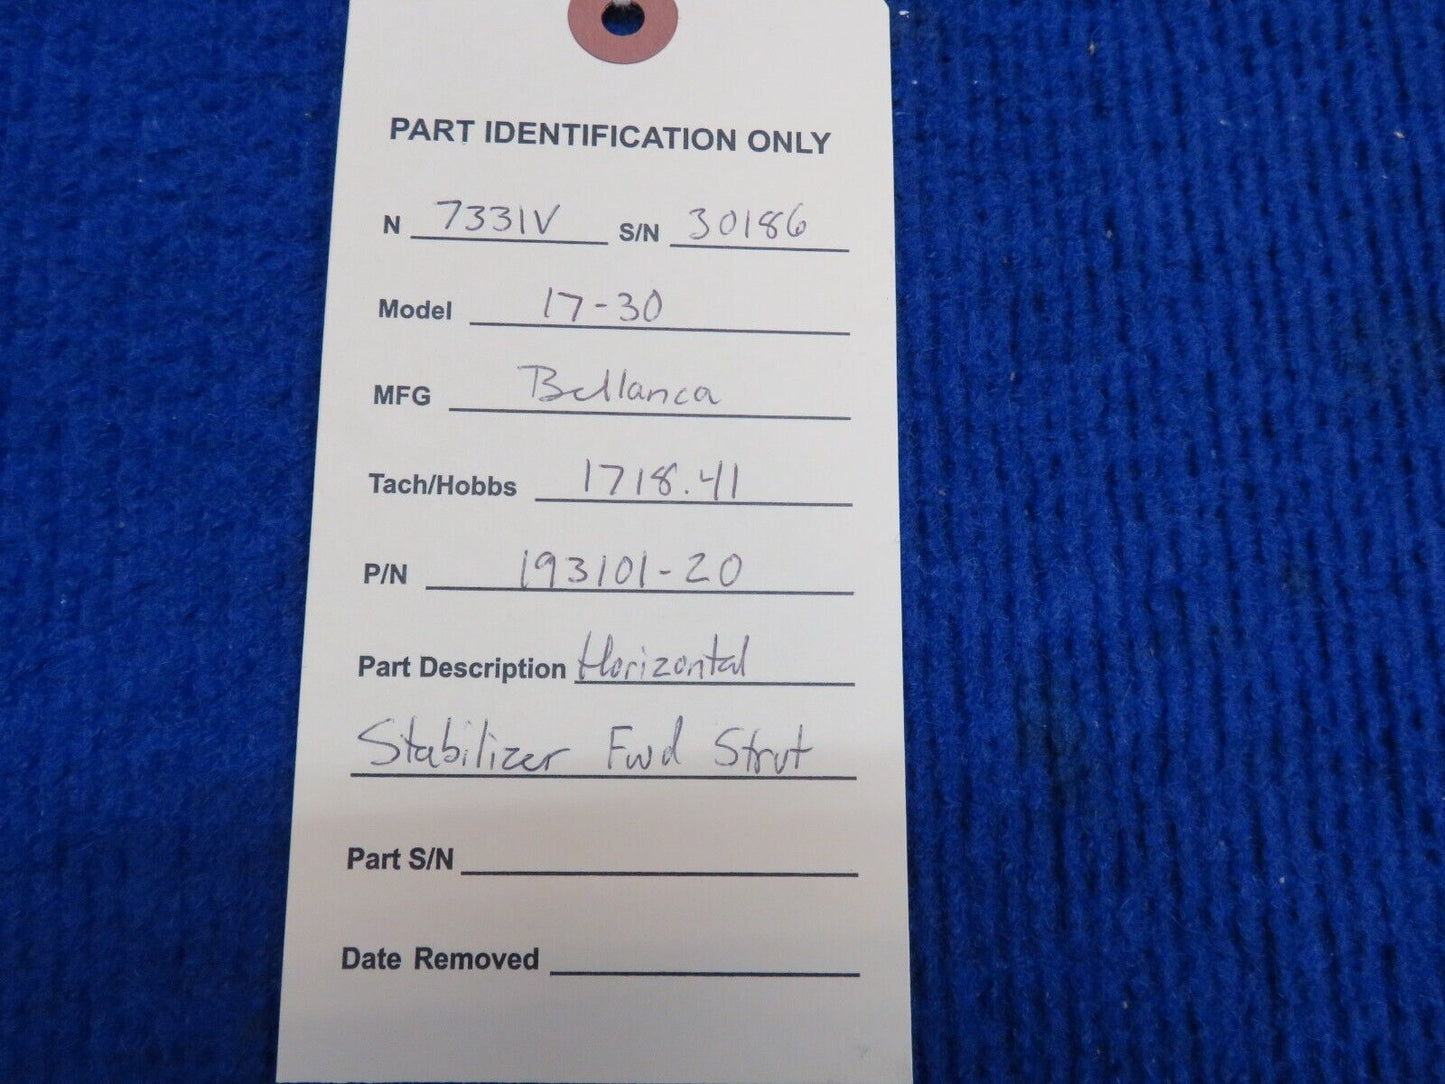 PART IDENTIFICATION ONLY
N 7331V S/N 30186
Model 17-30
MFG Bellanca
Tach/Hobbs 1718.41
P/N 193101-20
Part Description Horizontal
Stabilizer Fwd Strut
Part S/N
Date Removed